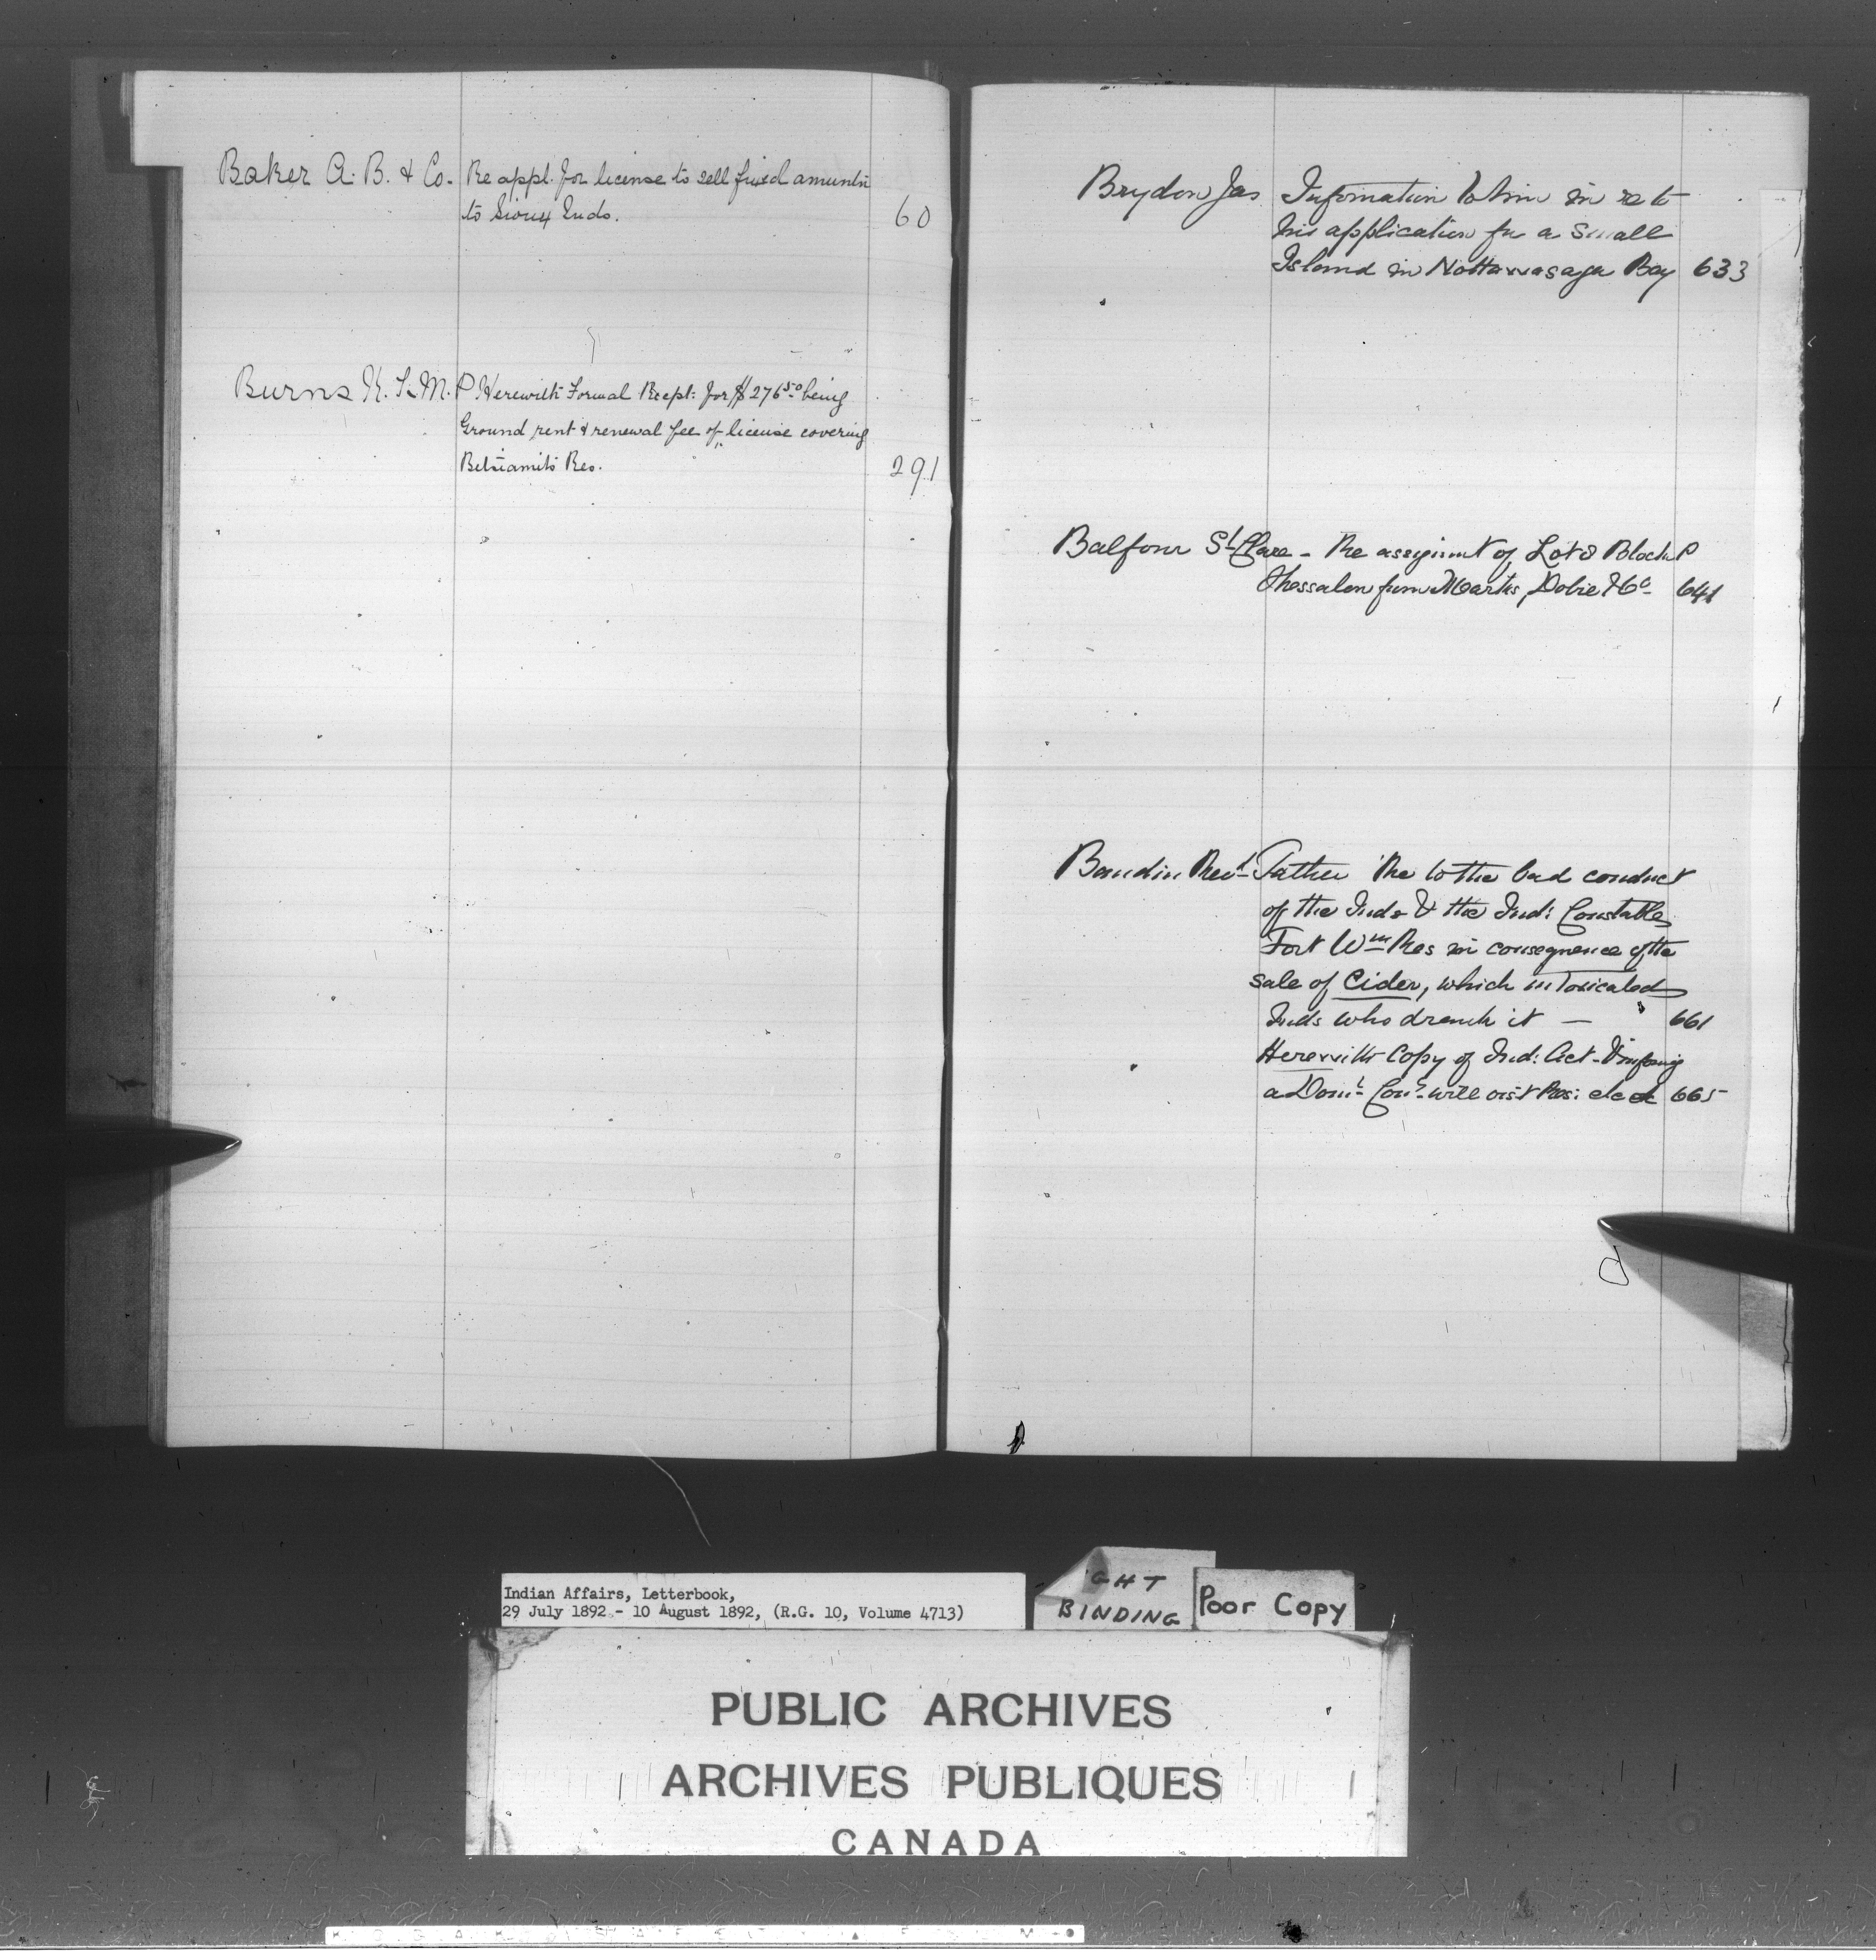 Baker A. B. & Co. Re appl. for license to sell fixed amuntn
to Sioux Inds. 60
Burns K. F. M. P Herewith Formal Recpt: for $276.50 being
Ground rent & renewal fee of license covering
Betsiamits Res. 291
Brydon Jas Information to him in re to
his application for a small
Island in Nottawasaga Bay 633
Balfour St. Clare - Re assignmt of Lot 8 Block P
Thessalon from Marks, Dobie & Co 641
Baudin Revd Father Re to the bad conduct
of the Inds & the Ind: Constable
Fort Wm Res in consequence of the
sale of Cider, which intoxicated
Inds who drank it — 661
Herewith Copy of Ind: Act - & infmg
a Domn Conr. will visit Res: etc etc 665
Indian Affairs, Letterbook,
29 July 1892 - 10 August 1892, (R.G. 10, Volume 4713)
GHT
BINDING
Poor Copy
PUBLIC ARCHIVES
ARCHIVES PUBLIQUES
CANADA